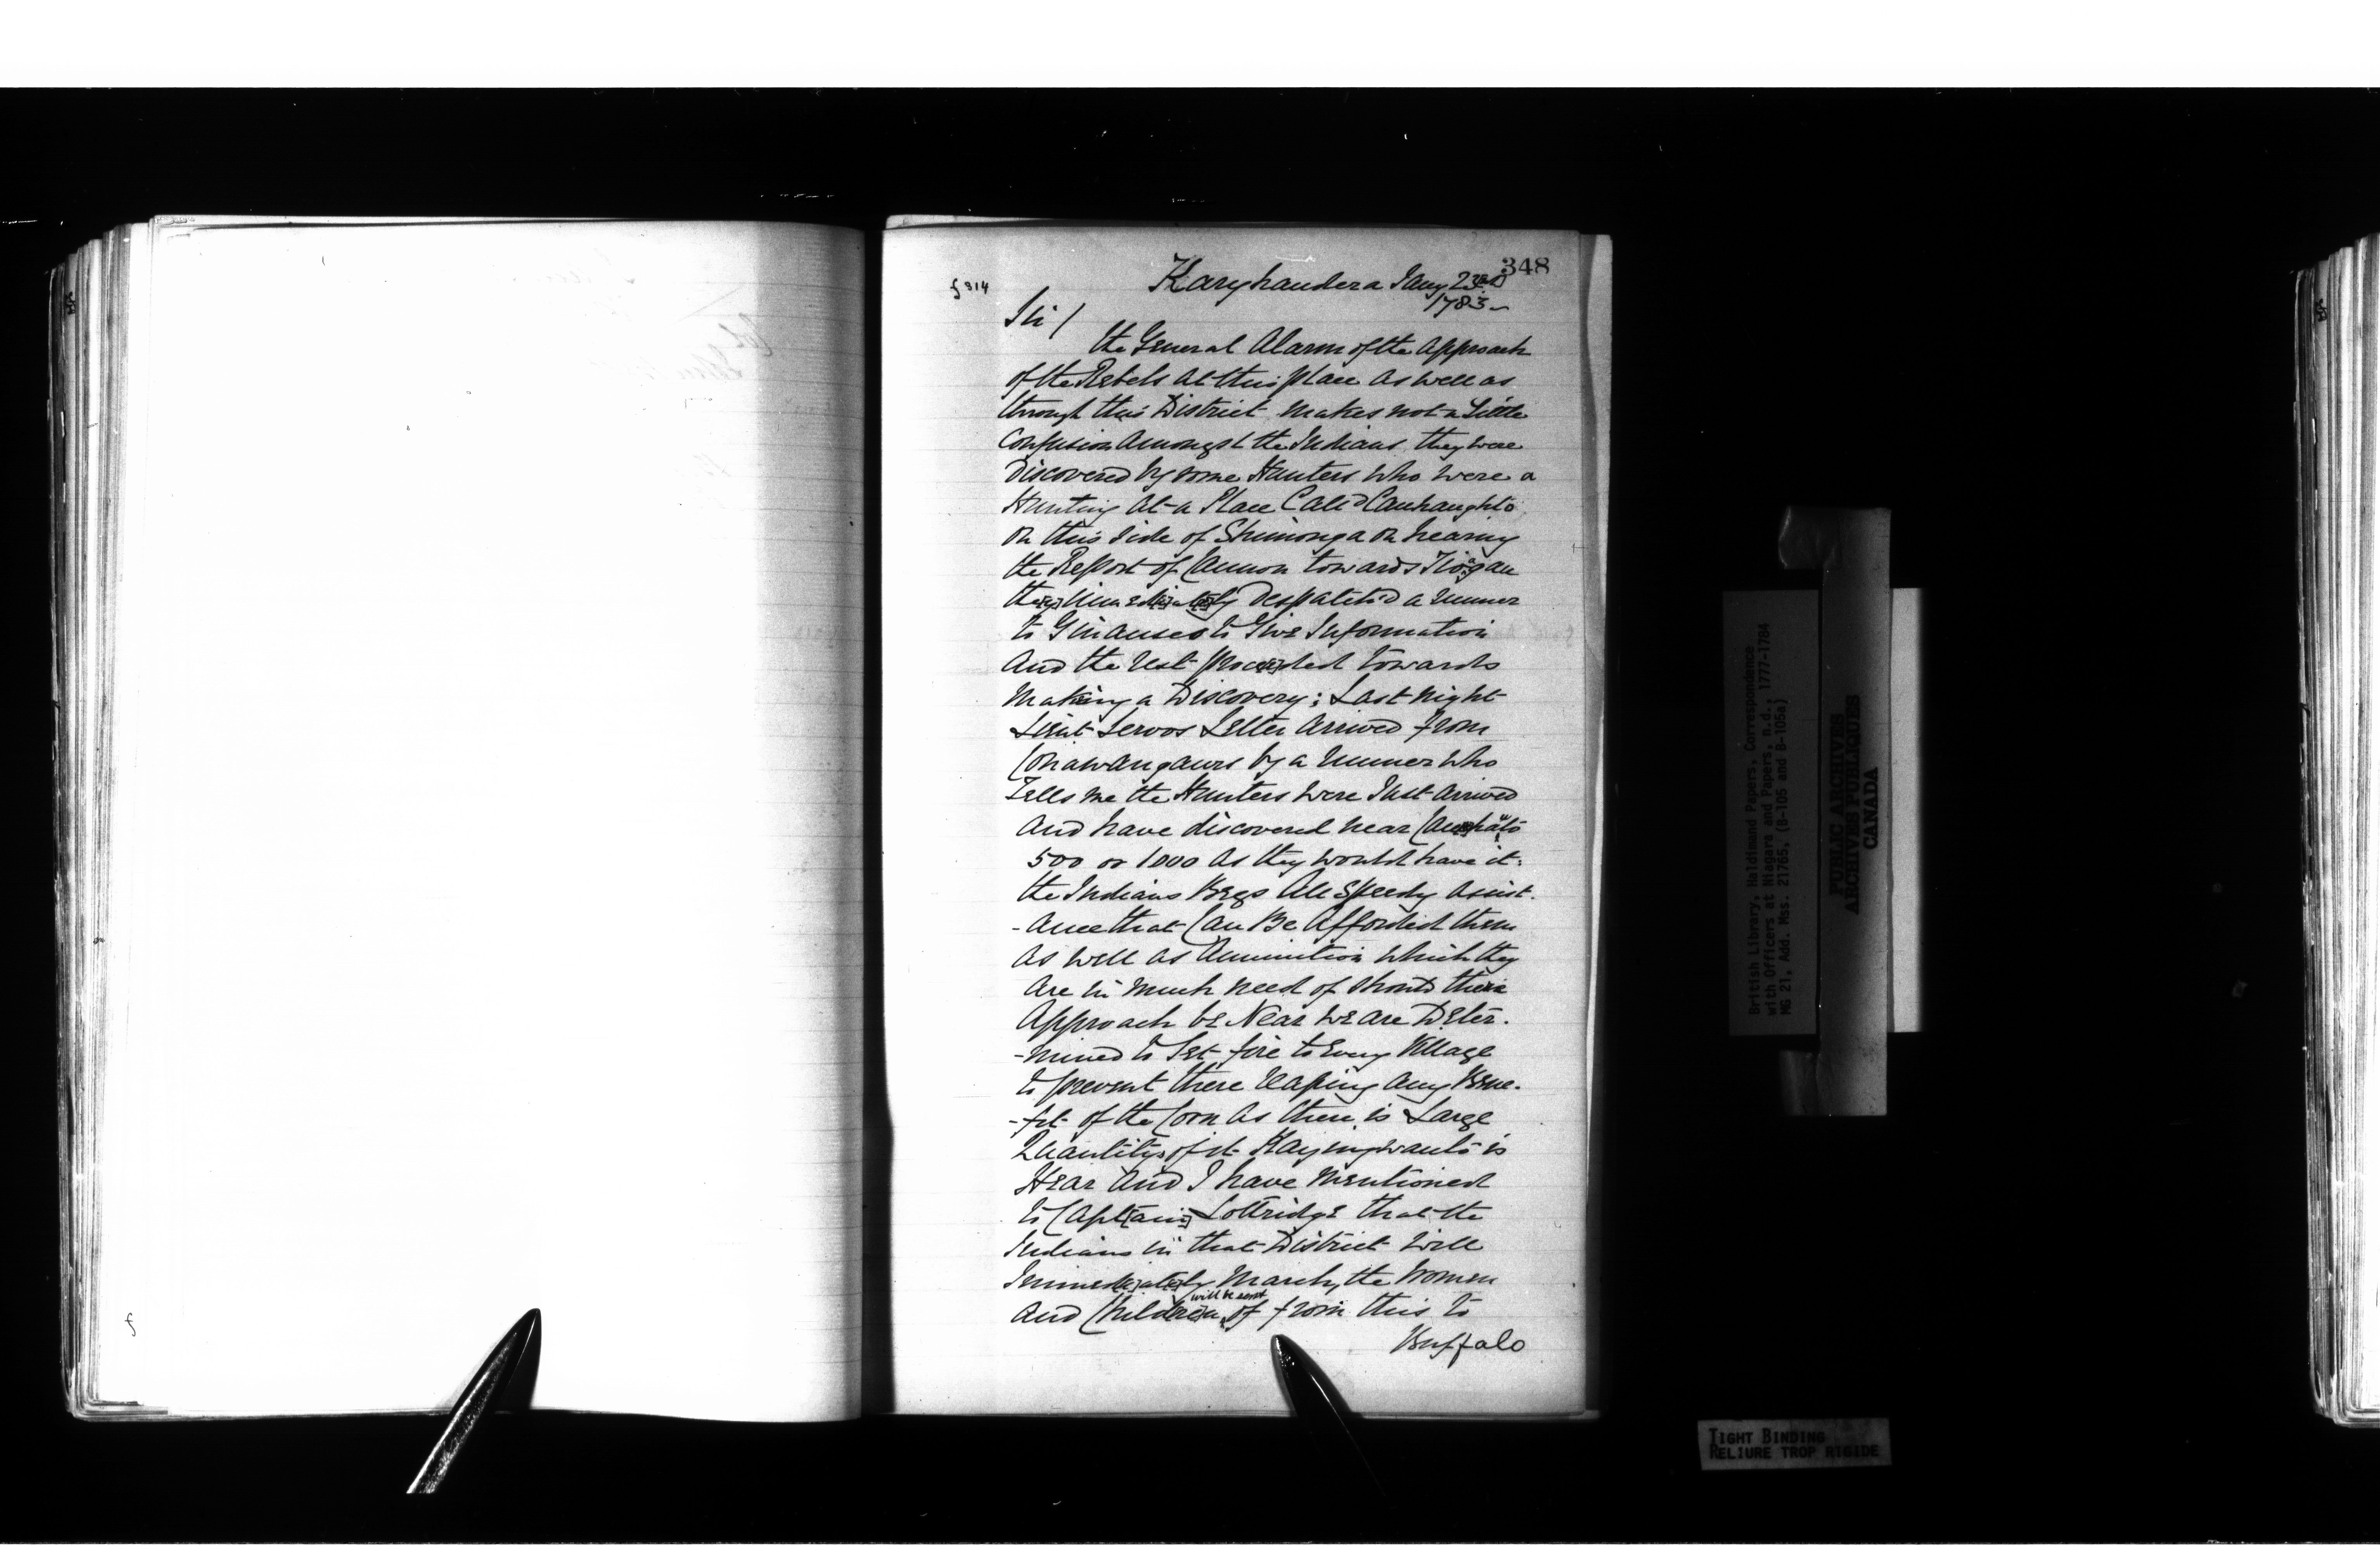 348
f 314
Karghandera Jany 23rd
1783 –
Sir /
the General Alarm of the Approach
of the Rebels at this place as well as
through this District makes not a Little
Confusion Amongst the Indians they were
Discovered by some Hunters who were a
Hunting at a Place Cal'd Canhaughto
on this side of Shimonga on hearing
the Report of Cannon towards Tiogau
they Immediately Despatch'd a runner
to Ginauseo to Give Information
And the rest proceeded towards
Making a Discovery; Last night
Lieut Servos Letter Arrived from
Conawangaurs by a runner who
Tells me the Hunters were Just Arrived
And have discovered near
500 or 1000 As they would have it:
the Indians Begs All Speedy Assist-
-ance that Can Be Afforded them
As well as Amunition which they
Are in much need of should their
Approach be Near we are Deter-
-mined to Set fire to Every Village
to prevent there reaping any Bene-
-fit of the Corn As there is Large
Quantitys of it Kayingwauto is
Hear And I have Mentioned
to Capt[ain] Lottridge that the
Indians in that District will
Immediately March, the Women
will be sent
And Children of from this to
Buffalo
British Library, Haldimand Papers, Correspondence
with Officers at Niagara and Papers, n.d., 1777-1784
MG 21, Add. Mss. 21765, (B-105 and B-105a)
PUBLIC ARCHIVES
ARCHIVES PUBLIQUES
CANADA
TIGHT BINDING
RELIURE TROP RIGIDE